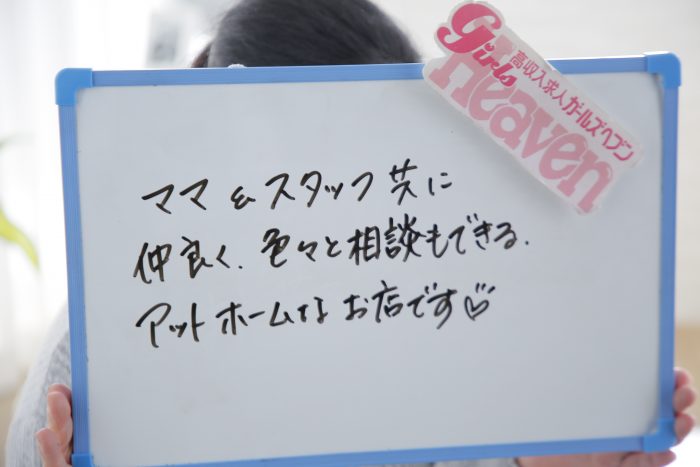 girls
Heaven
高収入求人ガールズヘブン
ママ & スタッフ 共に
仲良く、色々と相談もできる、
アットホームな お店です♡